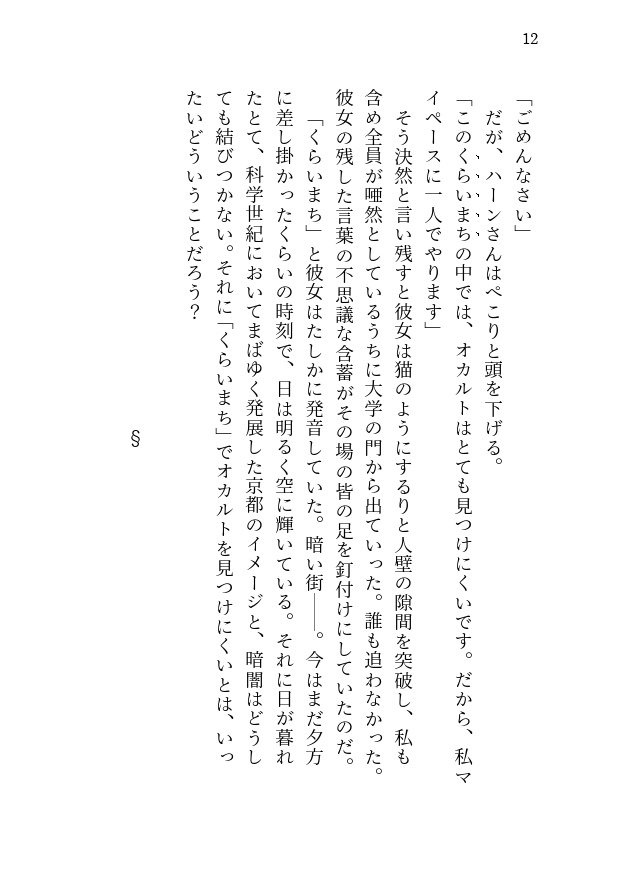 12
「ごめんなさい」
だが、ハーンさんはぺこりと頭を下げる。
「このくらいまちの中では、オカルトはとても見つけにくいです。だから、私マ
イペースに一人でやります」
そう決然と言い残すと彼女は猫のようにするりと人壁の隙間を突破し、私も
含め全員が唖然としているうちに大学の門から出ていった。誰も追わなかった。
彼女の残した言葉の不思議な含蓄がその場の皆の足を釘付けにしていたのだ。
「くらいまち」と彼女はたしかに発音していた。暗い街――。今はまだ夕方
に差し掛かったくらいの時刻で、日は明るく空に輝いている。それに日が暮れ
たとて、科学世紀においてまばゆく発展した京都のイメージと、暗闇はどうし
ても結びつかない。それに「くらいまち」でオカルトを見つけにくいとは、いっ
たいどういうことだろう？
§